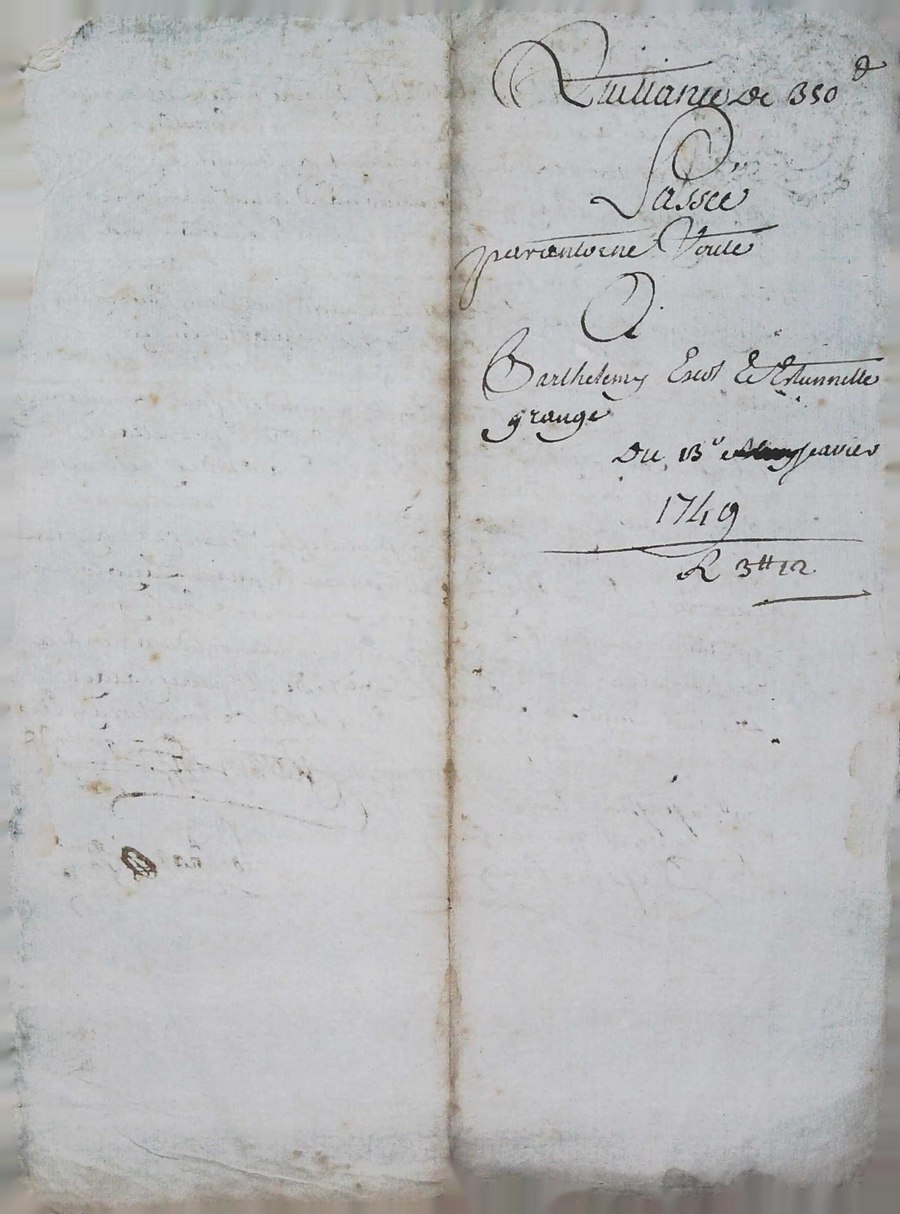 Quittance De 350
Passée
par antoine Voute
A
Barthelemy Escot Et Etiennette
grange
Du 13e Janvier
1749
R 3tt 12